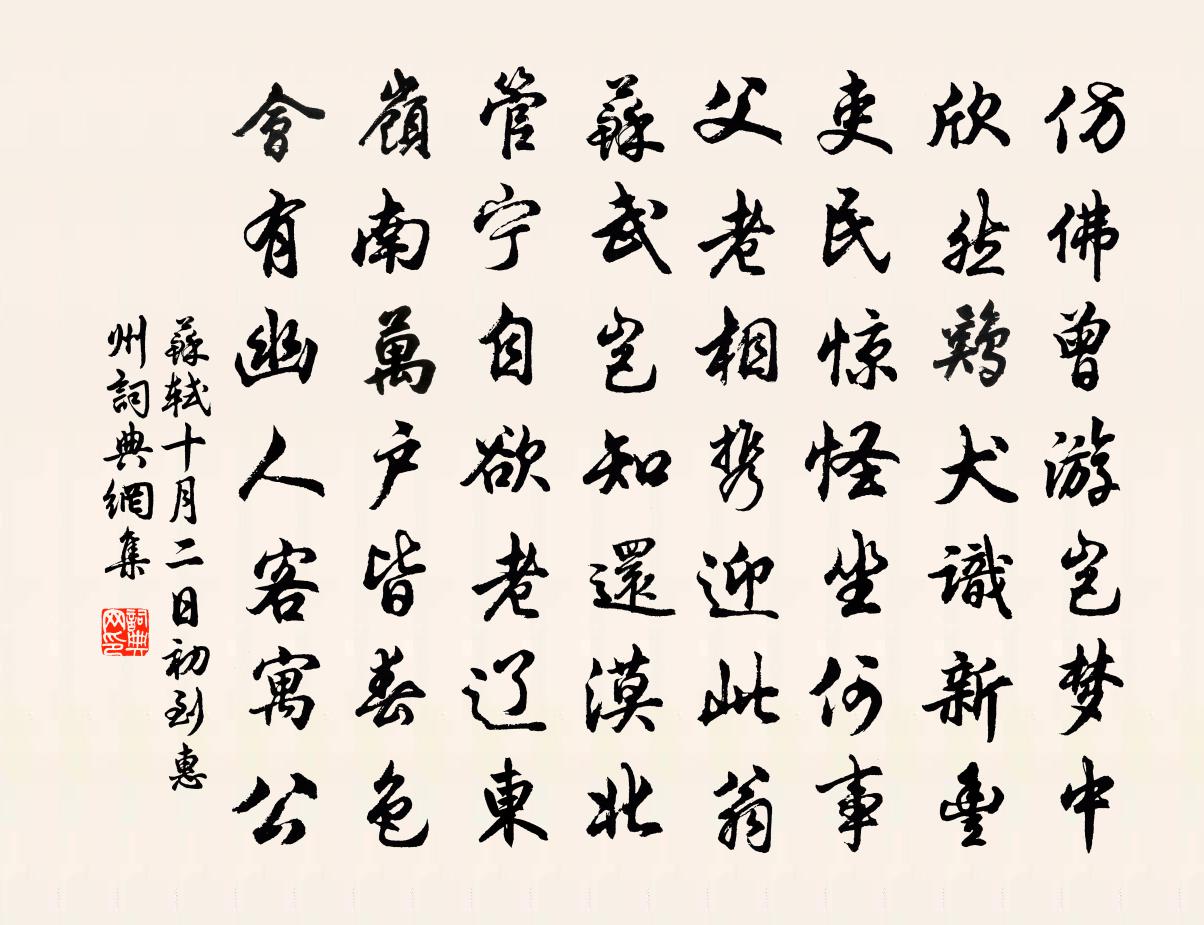 仿佛曾游岂梦中
欣然鷄犬識新豊
吏民惊怪坐何事
父老相携迎此翁
蘇武岂知還漠北
管宁自欲老辽東
嶺南萬户皆春色
會有幽人客寓公
蘇軾十月二日初到惠
州詞典網集
詞典网印